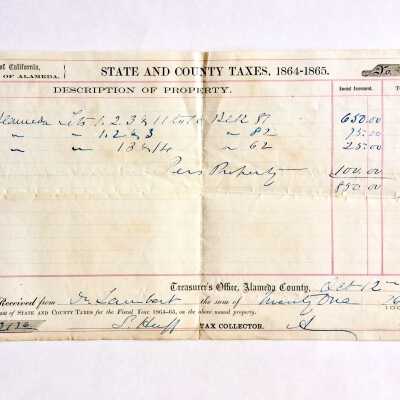 of California,
OF ALAMEDA.
STATE AND COUNTY TAXES, 1864-1865.
No.
DESCRIPTION OF PROPERTY.
Alameda Lots 1. 2. 3 & 11 to 16 Blk 87 650.00
" " 1. 2 & 3 " 82 75.00
" " 13 & 14 " 62 25.00
Pers Property 100.00
850.00
Treasurer's Office, Alameda County, Oct 12
Received from Lambert the sum of Twenty One
STATE AND COUNTY TAXES for the Fiscal Year 1864-65, on the above named property.
S. Huff TAX COLLECTOR.